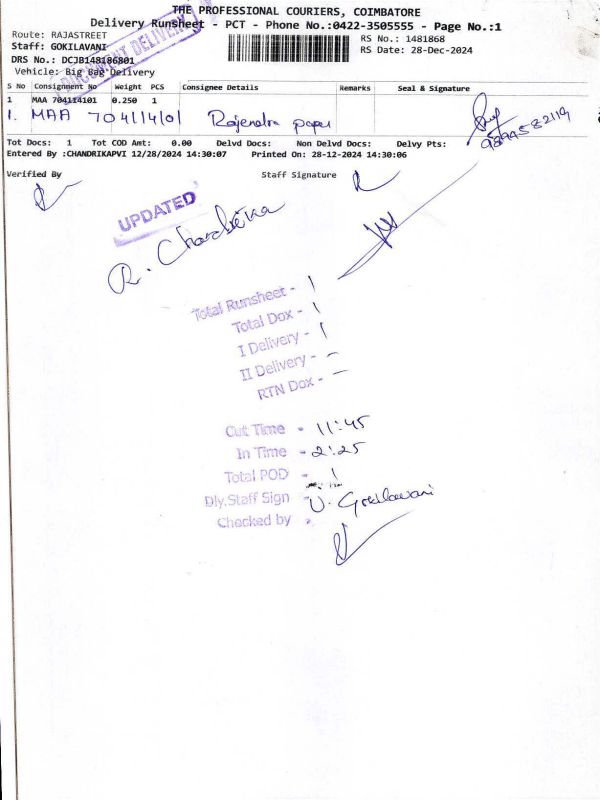 THE PROFESSIONAL COURIERS, COIMBATORE
Delivery Runsheet - PCT - Phone No.:0422-3505555 - Page No.:1
Route: RAJASTREET
RS No.: 1481868
Staff: GOKILAVANI
RS Date: 28-Dec-2024
DRS No.: DCJB148186801
Vehicle: Big Bag Delivery
DOCUMENT DELIVERY
S No Consignment No Weight PCS Consignee Details Remarks Seal & Signature
1 MAA 704114101 0.250 1
1. MAA 704114101 Rajendra paper
9894582119
Tot Docs: 1 Tot COD Amt: 0.00 Delvd Docs: Non Delvd Docs: Delvy Pts:
Entered By :CHANDRIKAPVI 12/28/2024 14:30:07 Printed On: 28-12-2024 14:30:06
Verified By Staff Signature
UPDATED
R. Chandrika
Total Runsheet - 1
Total Dox - 1
I Delivery - 1
II Delivery - -
RTN Dox - -
Out Time - 11:45
In Time - 2:25
Total POD - 1
Dly.Staff Sign U. Gokilavani
Checked by -